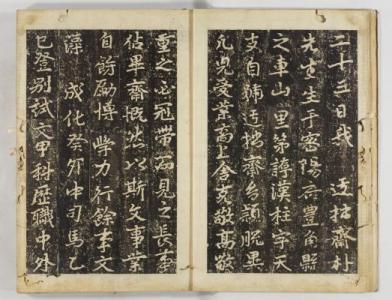 二十三日哉 迂拙齋朴
先生生于密陽府豐角縣
之車山里第諱漢柱字天
支自號迂拙齋幼穎脫異
凡児受業高上舍克敬高敬
重之必冠帶而見之長事
佔畢齋慨然以斯文事業
自飭勵博學力行餘事文
藻 成化癸卯中司馬乙
巳登別試文甲科歷職中外